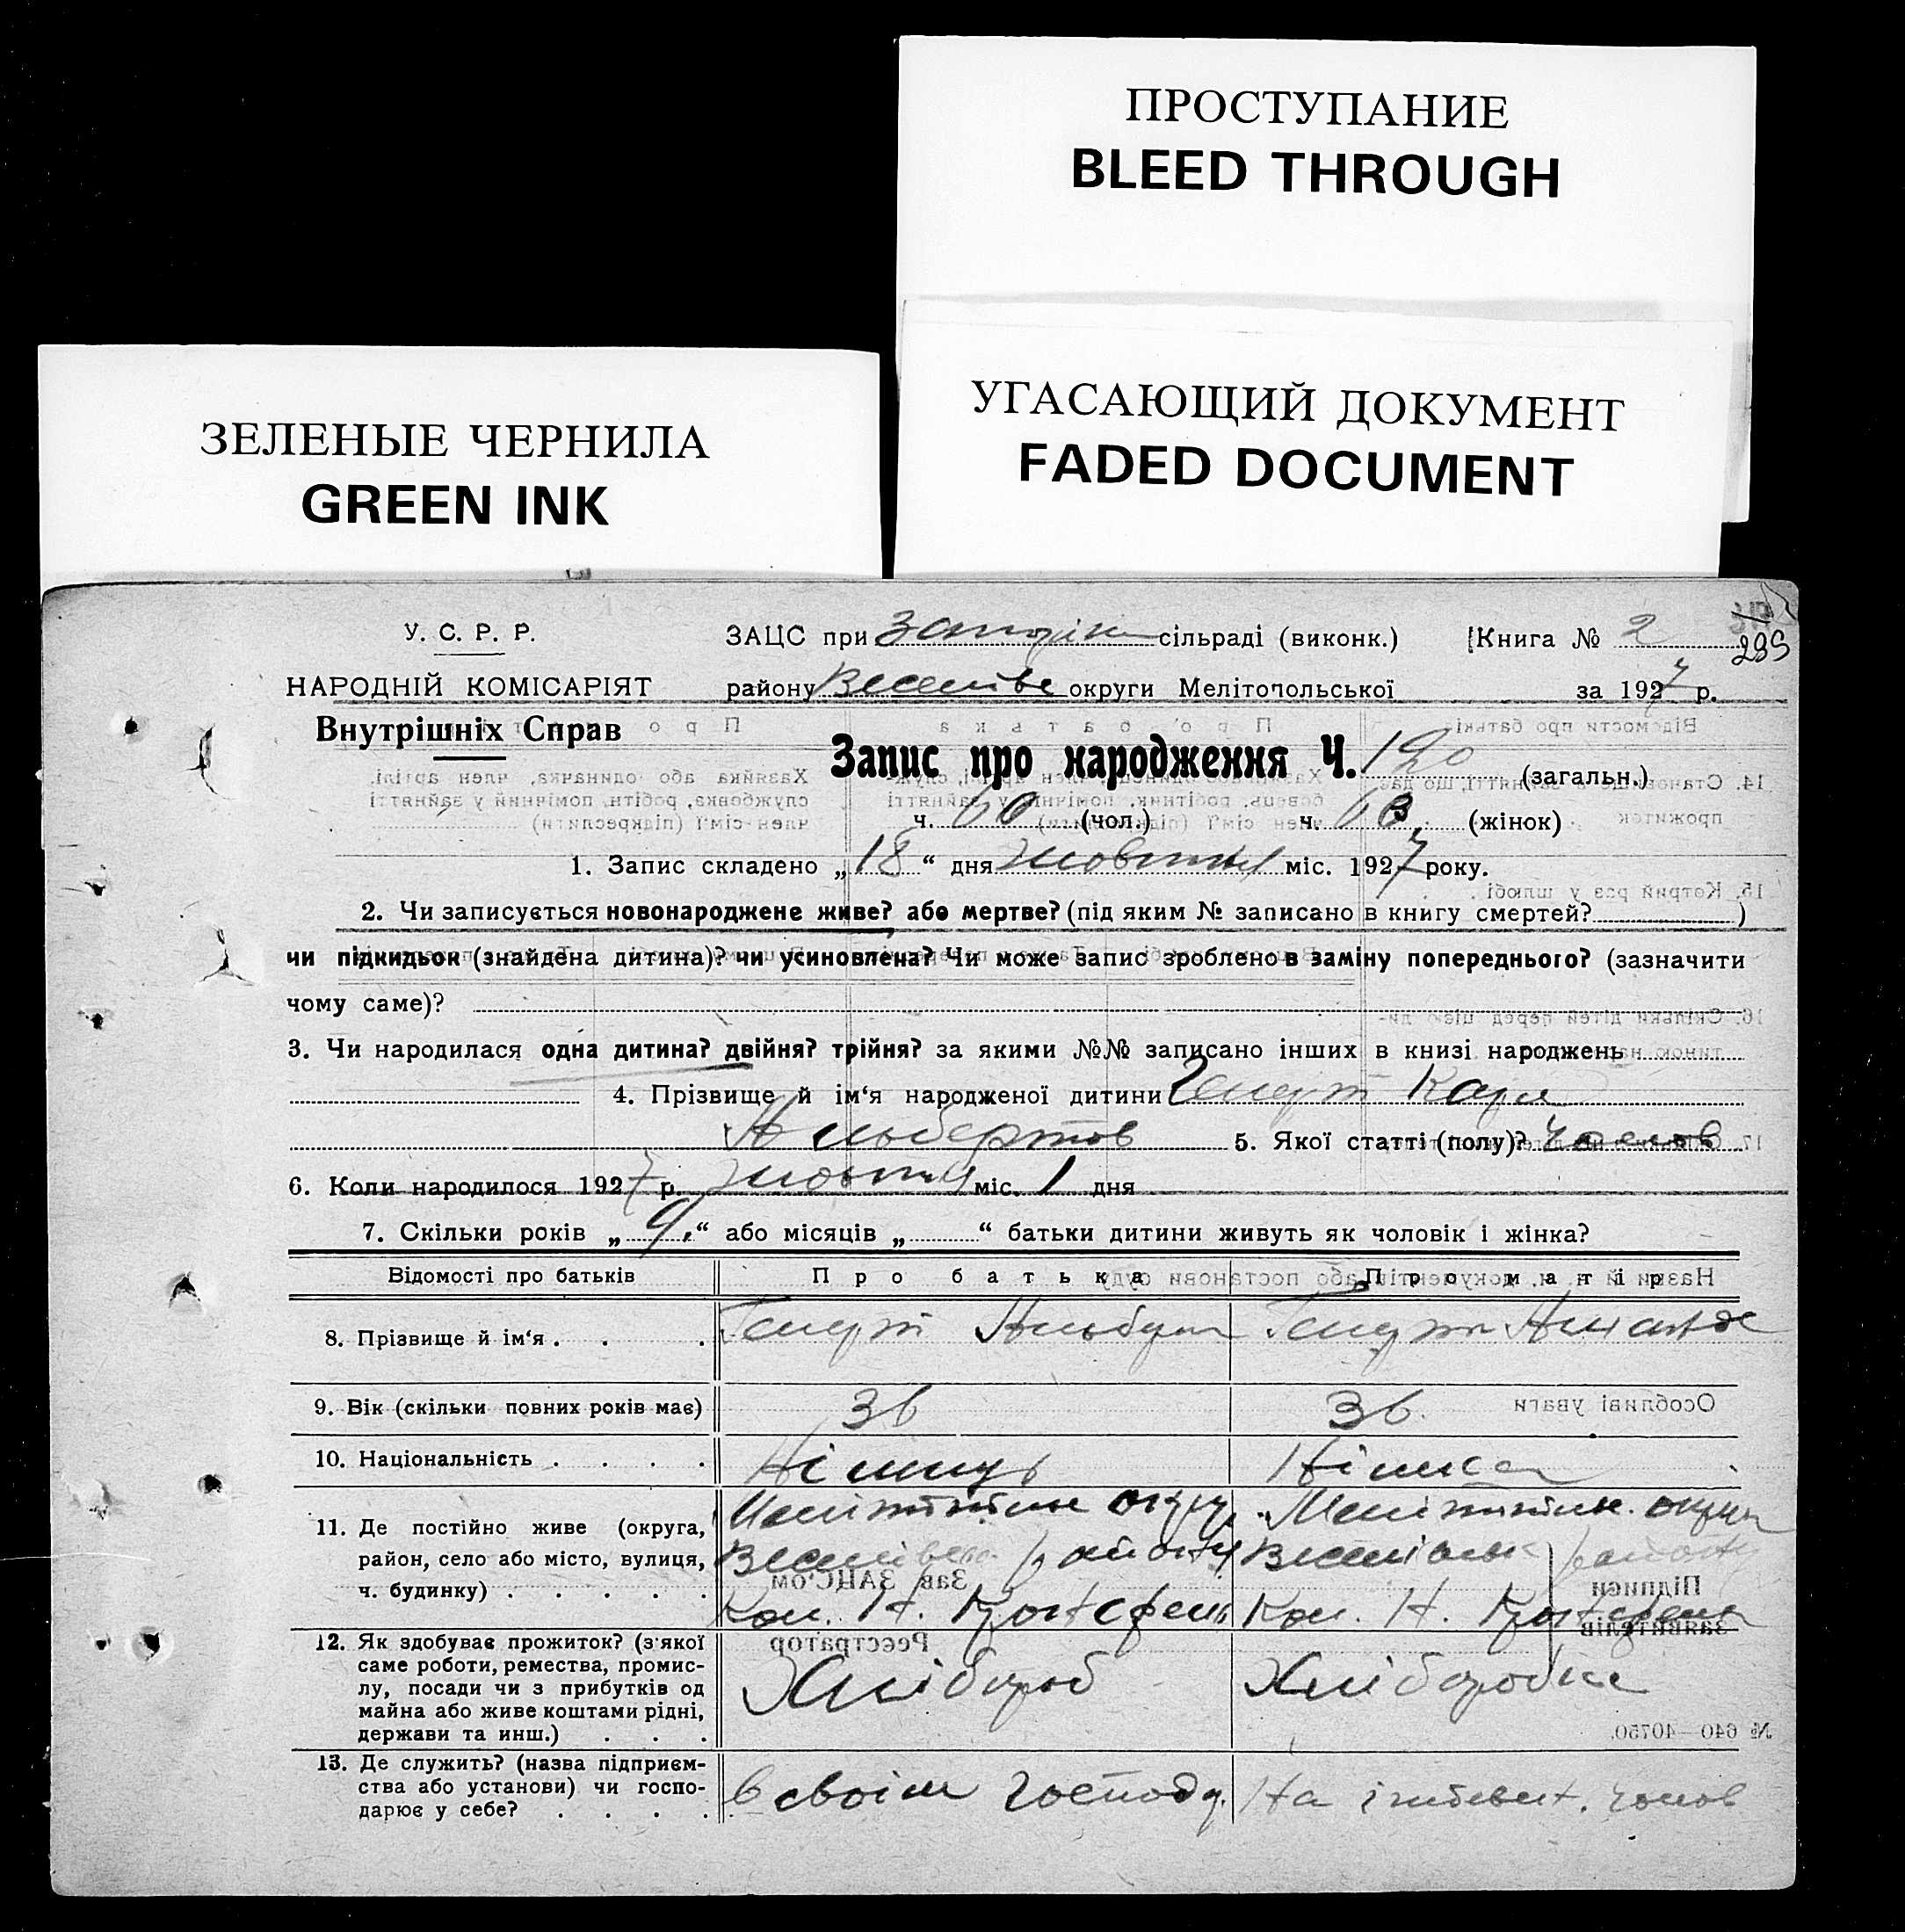 ПРОСТУПАНИЕ
BLEED THROUGH
УГАСАЮЩИЙ ДОКУМЕНТ
FADED DOCUMENT
ЗЕЛЕНЫЕ ЧЕРНИЛА
GREEN INK
У. С. Р. Р.
ЗАЦС при сільраді (виконк.) [Книга № 2
299
НАРОДНІЙ КОМІСАРІЯТ
району округи Мелітопольської за 1927 р.
Внутрішніх Справ
Запис про народження Ч. 120 (загальн.)
ч. 60 (чол.) ч. (жінок)
1. Запис складено „18“ дня жовтня міс. 1927 року.
2. Чи записується новонароджене живе? або мертве? (під яким № записано в книгу смертей? )
чи підкидьок (знайдена дитина)? чи усиновлена? Чи може запис зроблено в заміну попереднього? (зазначити
чому саме)?
3. Чи народилася одна дитина? двійня? трійня? за якими №№ записано інших в книзі народжень
4. Прізвище й ім‘я народженої дитини Карл
Альбертов 5. Якої статті (полу)? чолов
6. Коли народилося 1927 р. жовтня міс. 1 дня
7. Скільки років „9.“ або місяців „ “ батьки дитини живуть як чоловік і жінка?
Відомості про батьків Про батька Про матір
8. Прізвище й ім‘я . . . Альберт
9. Вік (скільки повних років має) 36 36.
10. Національність . . . . Німець Німка
11. Де постійно живе (округа, район, село або місто, вулиця, ч. будинку) . . . . .
Мелітопільс округ Мелітопільс. округи
району району
Кол. Н. Кронсфельд Кол. Н. Кронсфельд
12. Як здобуває прожиток? (з якої
саме роботи, ремества, промис-
лу, посади чи з прибутків од
майна або живе коштами рідні,
держави та инш.) . . .
Хлібороб Хліборобка
13. Де служить? (назва підприєм-
ства або установи) чи госпо-
дарює у себе? . . . .
в своїм господ. На чолов